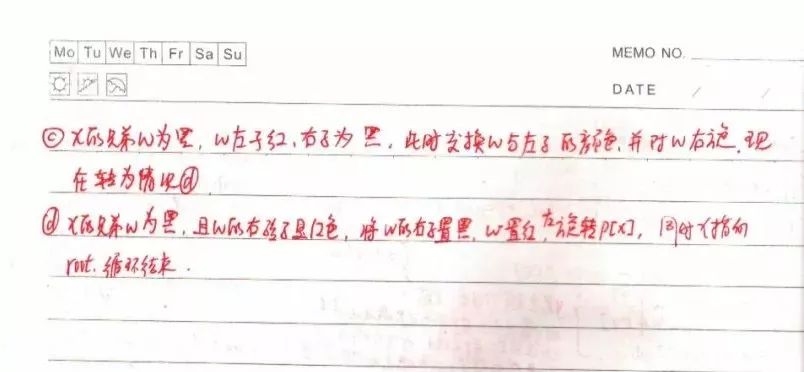 Mo Tu We Th Fr Sa Su
MEMO NO.
DATE / /
ⓒ x的兄弟w为黑，w左子红，右子为黑，此时交换w与左子的颜色，并对w右旋，现
在转为情况ⓓ
ⓓ x的兄弟w为黑，且w的右孩子是红色，将w的右子置黑，w置红，左旋转P[x]，同时x指向
root. 循环结束.